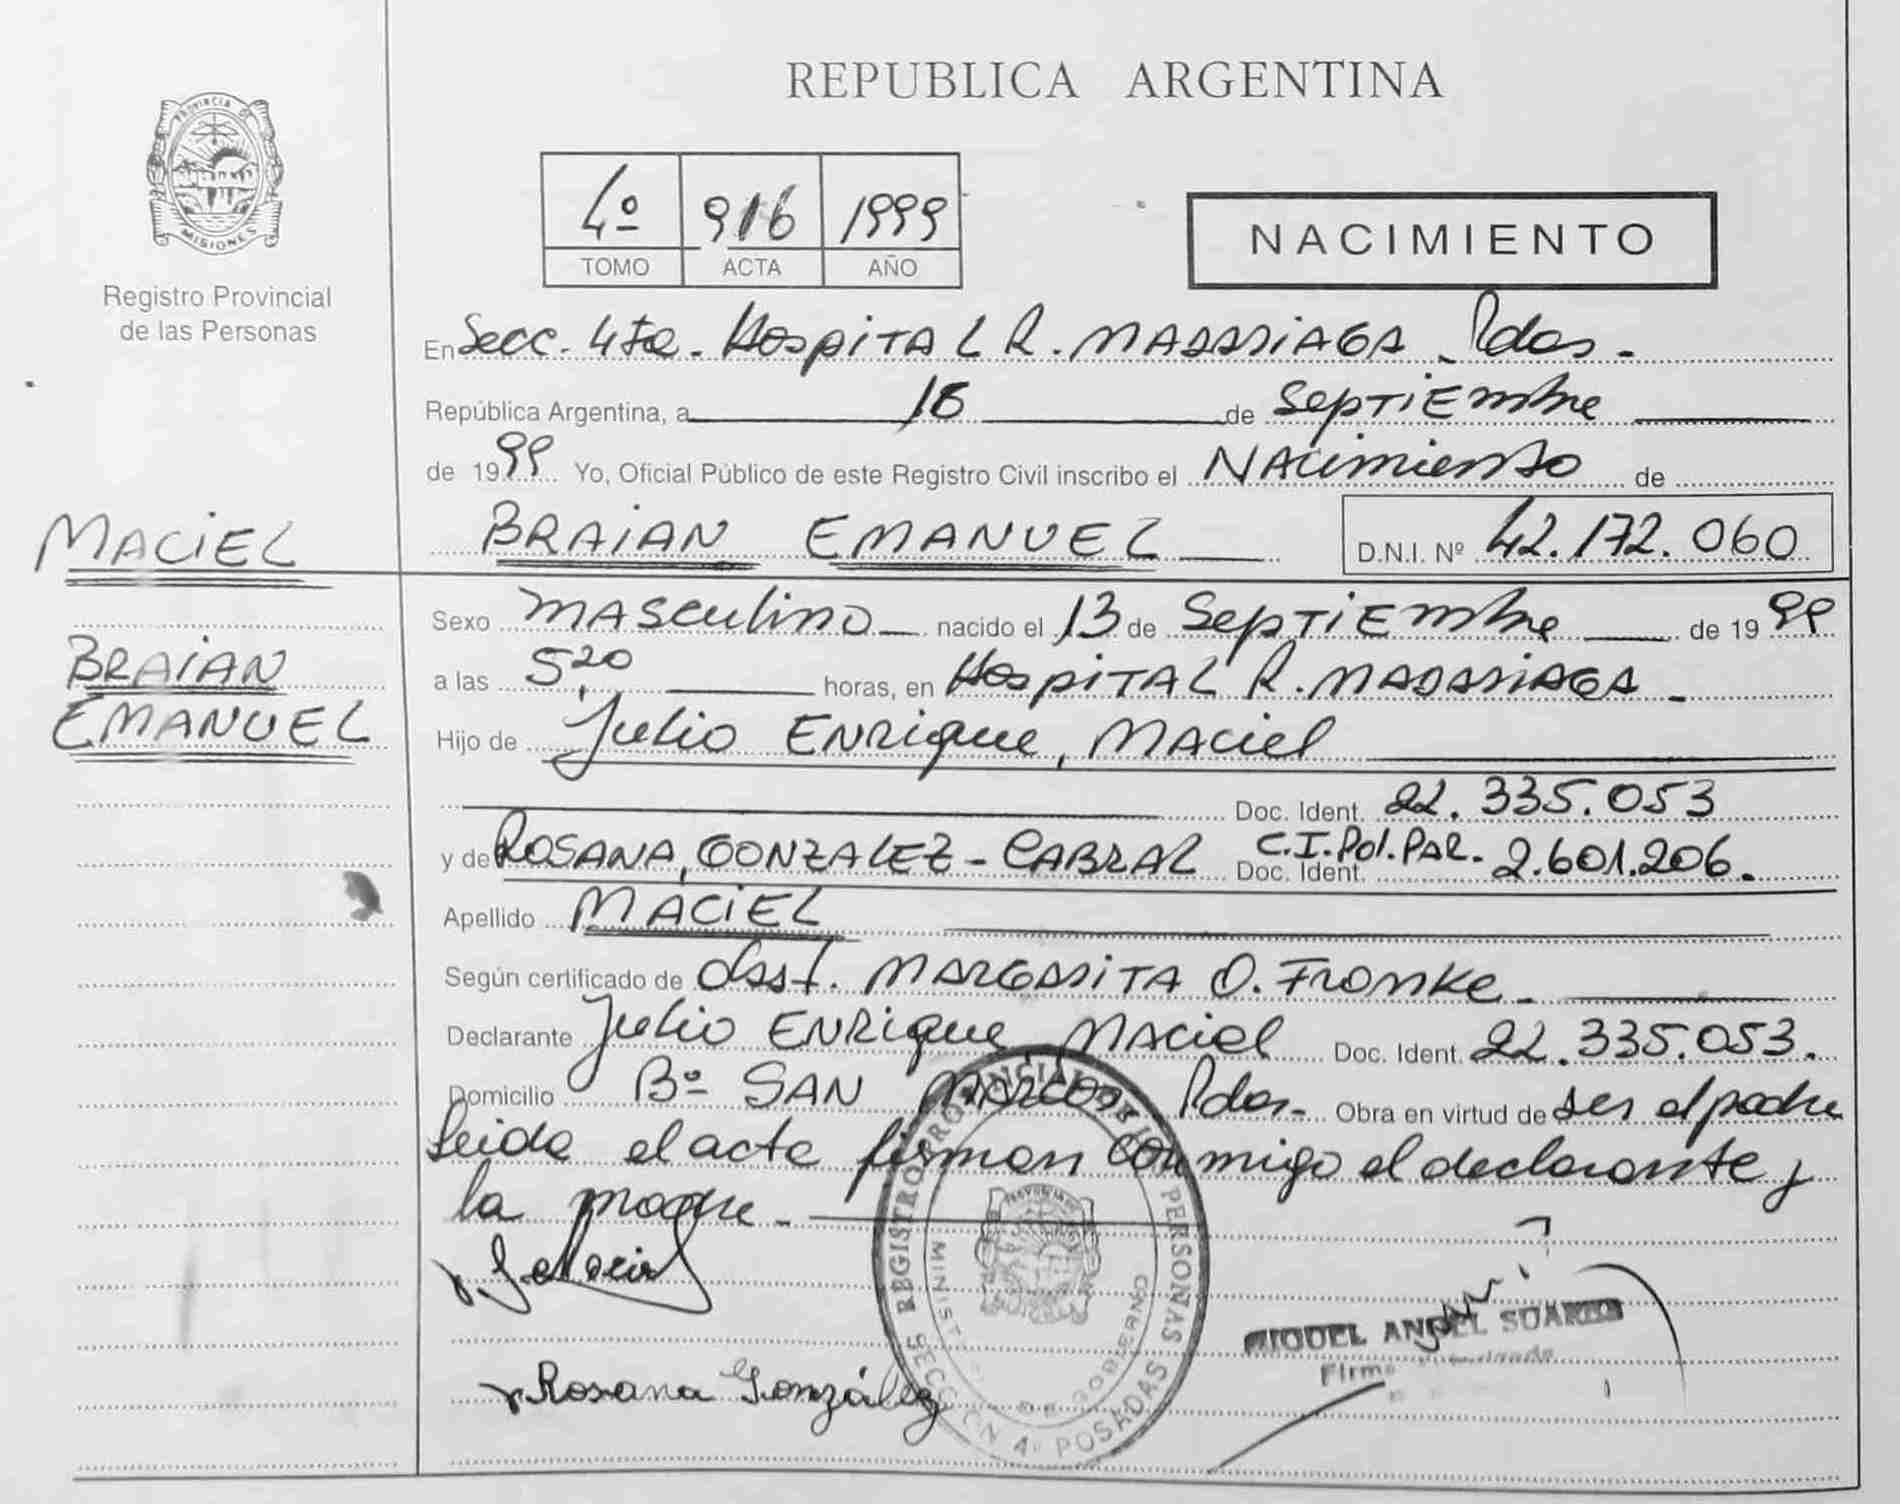 REPUBLICA ARGENTINA
PROVINCIA DE
MISIONES
Registro Provincial
de las Personas
4º 916 1999
TOMO ACTA AÑO
NACIMIENTO
En Secc. 4ta. Hospital R. MADARIAGA - Pdas.
República Argentina, a 16 de Septiembre
de 1999 Yo, Oficial Público de este Registro Civil inscribo el Nacimiento de
MACIEL
BRAIAN EMANUEL D.N.I. Nº 42.172.060
Sexo masculino nacido el 13 de Septiembre de 1999
BRAIAN
EMANUEL
a las 5,20 horas, en Hospital R. MADARIAGA -
Hijo de Julio Enrique, Maciel
Doc. Ident. 22.335.053
y de ROSANA, GONZALEZ - CABRAL Doc. Ident. C.I. Pol. PAR. 2.601.206.
Apellido MACIEL
Según certificado de Obst. MARGARITA O. Fronke -
Declarante Julio Enrique, Maciel Doc. Ident. 22.335.053.
Domicilio Bº SAN Marcos. Pdas- Obra en virtud de ser el padre
leida el acta firman conmigo el declarante y
la madre -
Rosana González
REGISTRO PROVINCIAL DE LAS PERSONAS
MINISTERIO DE GOBIERNO
SECCION 4º POSADAS
MIGUEL ANGEL SUAREZ